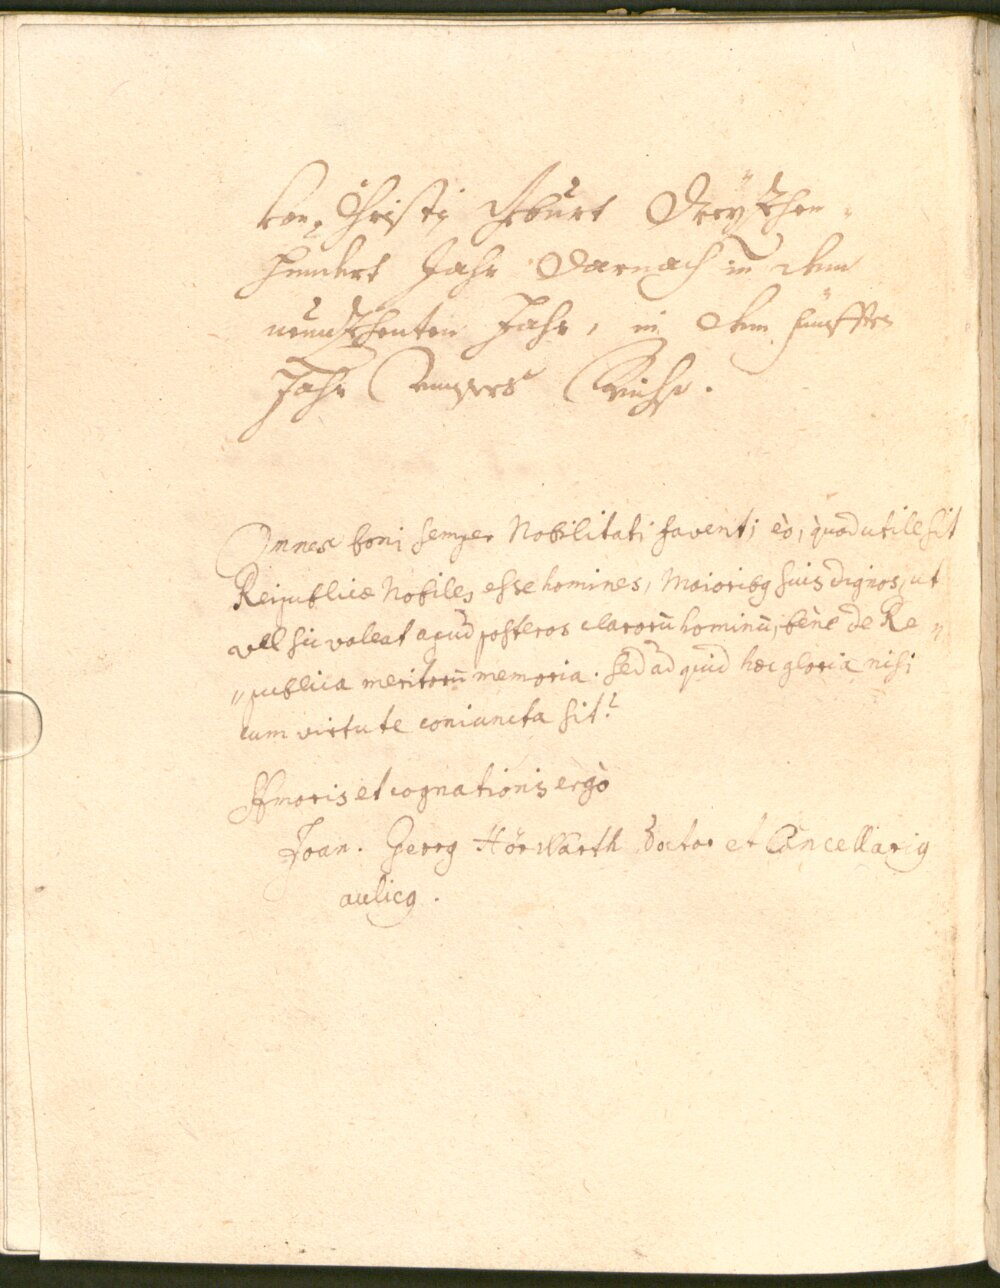 von Christi Geburt Dreyzehen-
hundert Jahr Darnach in dem
neunzehenten Jahr, in dem fünfften
Jahr unsers Reichs.
Omnes boni semper Nobilitati faventi eò, quod utille sit
Reipublicæ Nobiles esse homines, Maioribq suis dignos, ut
vell sii valeat apud posteros clarorū hominū, bène de Re„
„publica meritorū memoria. Sed ad quid hæc gloria nisi
cum virtute coniuncta sit?
Amoris et cognationis ergò
Joan. Georg Hörwarth Doctor et Cancellariq
aulicq.